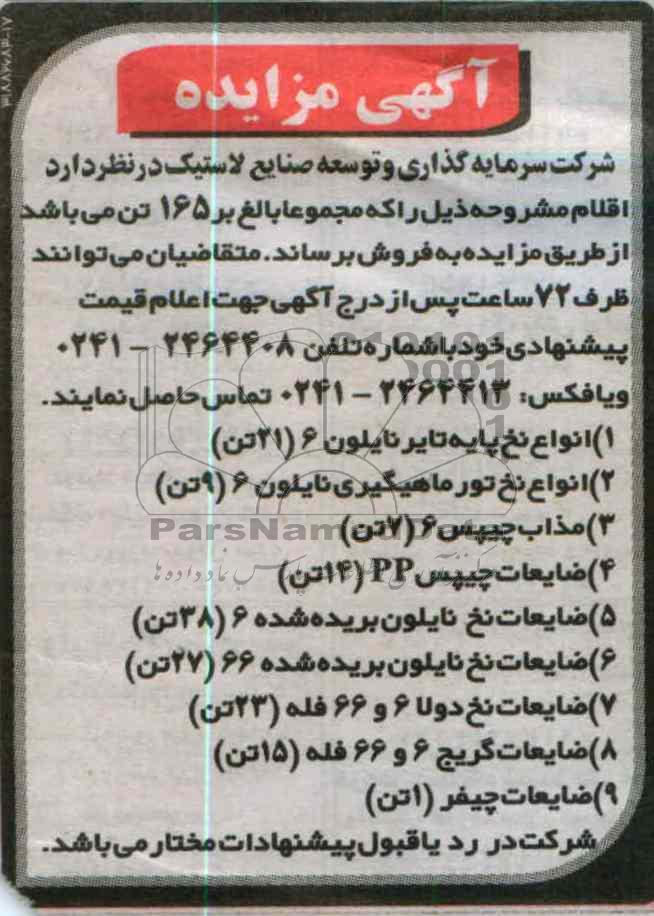 آگهی مزایده
شرکت سرمایه گذاری و توسعه صنایع لاستیک در نظر دارد
اقلام مشروحه ذیل را که مجموعا بالغ بر ۱۶۵ تن می باشد
از طریق مزایده به فروش برساند. متقاضیان می توانند
ظرف ۷۲ ساعت پس از درج آگهی جهت اعلام قیمت
پیشنهادی خود با شماره تلفن ۲۴۶۴۴۰۸ - ۰۲۴۱
و یا فکس: ۲۴۶۴۴۱۳ - ۰۲۴۱ تماس حاصل نمایند.
۱) انواع نخ پایه تایر نایلون ۶ (۲۱ تن)
۲) انواع نخ تور ماهیگیری نایلون ۶ (۹ تن)
۳) مذاب چیپس ۶ (۷ تن)
ParsNamadData
۴) ضایعات چیپس PP (۱۴ تن)
۵) ضایعات نخ نایلون بریده شده ۶ (۳۸ تن)
۶) ضایعات نخ نایلون بریده شده ۶۶ (۲۷ تن)
۷) ضایعات نخ دولا ۶ و ۶۶ فله (۲۳ تن)
۸) ضایعات گریج ۶ و ۶۶ فله (۱۵ تن)
۹) ضایعات چیفر (۱ تن)
شرکت در رد یا قبول پیشنهادات مختار می باشد.